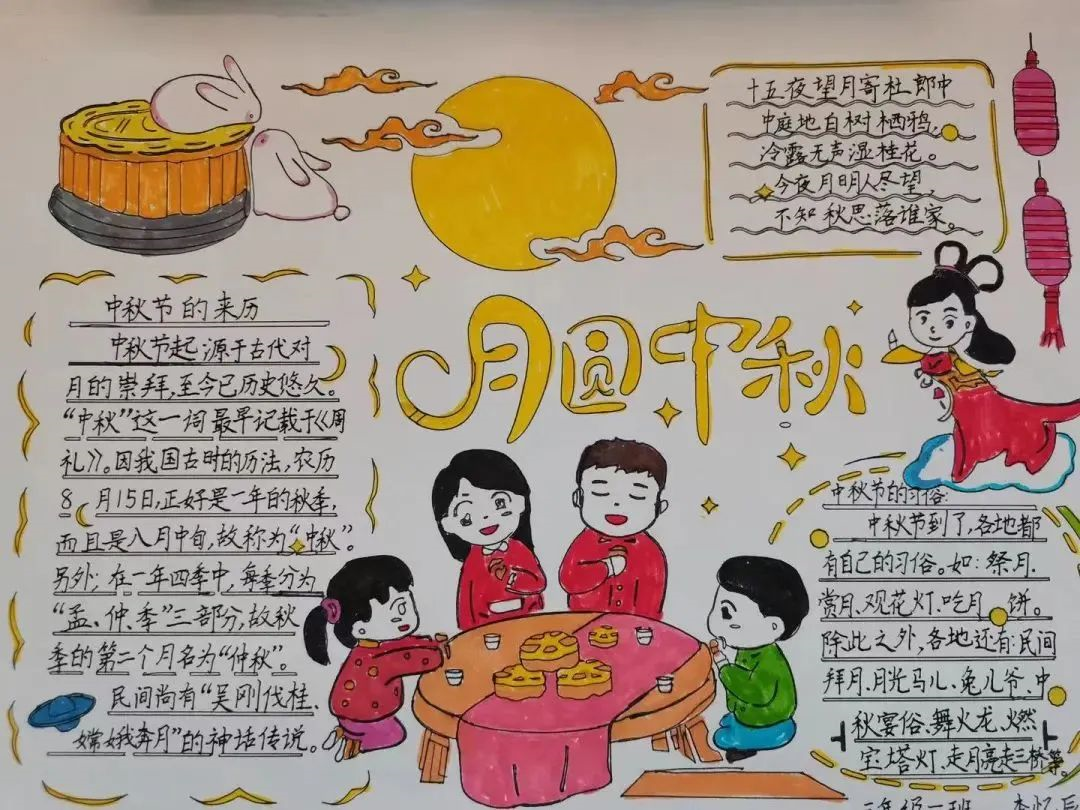 十五夜望月寄杜郎中
中庭地白树栖鸦,
冷露无声湿桂花。
今夜月明人尽望,
不知秋思落谁家。
月圆中秋
中秋节的来历
中秋节起源于古代对
月的崇拜,至今已历史悠久。
“中秋”这一词最早记载于《周
礼》。因我国古时的历法,农历
8月15日,正好是一年的秋季,
而且是八月中旬,故称为“中秋”。
另外:在一年四季中,每季分为
“孟、仲、季”三部分,故秋
季的第二个月名为“仲秋”。
民间尚有“吴刚伐桂、
嫦娥奔月”的神话传说。
中秋节的习俗:
中秋节到了,各地都
有自己的习俗。如:祭月、
赏月、观花灯、吃月饼。
除此之外,各地还有:民间
拜月、月光马儿、兔儿爷、中
秋宴俗、舞火龙、燃
宝塔灯、走月亮走三桥等。
三年级一班